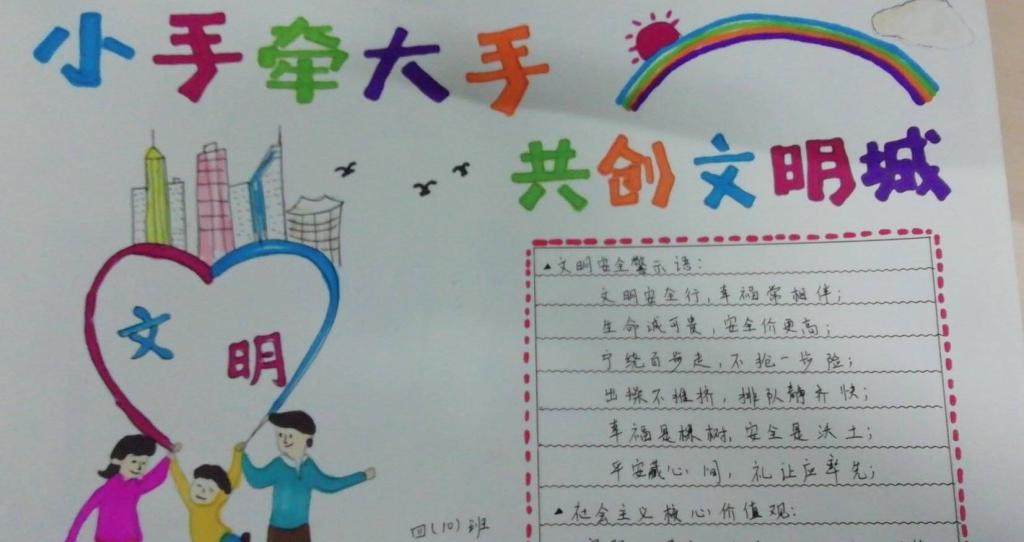 小手牵大手
共创文明城
文明
▲文明安全警示语：
文明安全行，幸福常相伴；
生命诚可贵，安全价更高；
宁绕百步走，不抢一步险；
出操不推挤，排队静齐快；
幸福是棵树，安全是沃土；
平安藏心间，礼让应率先；
▲社会主义核心价值观：
四（10）班